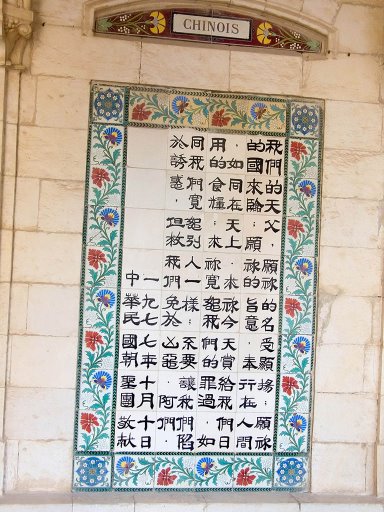 CHINOIS
我們的天父，願祢的名受顯揚；願祢
的國來臨；願祢的旨意，奉行在人間
，如同在天上，求祢今天賞給我們日
用的食糧，求祢寬恕我們的罪過，如
同我們寬恕別人一樣；不要讓我們陷
於誘惑，但救我們免於凶惡，阿們。
一九七七年十月十日
中華民國朝聖團敬献